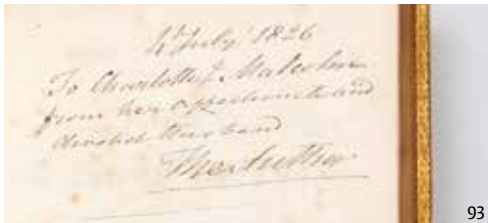 4 July 1826
To Charlotte Malcolm
from her affectionate and
devoted Husband
The Author
93